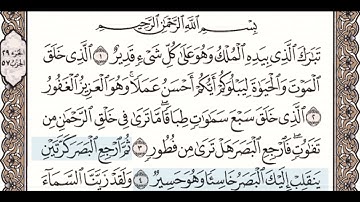 بِسْمِ ٱللَّهِ ٱلرَّحْمَٰنِ ٱلرَّحِيمِ
تَبَٰرَكَ ٱلَّذِى بِيَدِهِ ٱلْمُلْكُ وَهُوَ عَلَىٰ كُلِّ شَىْءٍ قَدِيرٌ ١ ٱلَّذِى خَلَقَ
ٱلْمَوْتَ وَٱلْحَيَوٰةَ لِيَبْلُوَكُمْ أَيُّكُمْ أَحْسَنُ عَمَلًا ۚ وَهُوَ ٱلْعَزِيزُ ٱلْغَفُورُ
٢ ٱلَّذِى خَلَقَ سَبْعَ سَمَٰوَٰتٍ طِبَاقًا ۖ مَّا تَرَىٰ فِى خَلْقِ ٱلرَّحْمَٰنِ مِن
تَفَٰوُتٍ ۖ فَٱرْجِعِ ٱلْبَصَرَ هَلْ تَرَىٰ مِن فُطُورٍ ٣ ثُمَّ ٱرْجِعِ ٱلْبَصَرَ كَرَّتَيْنِ
يَنقَلِبْ إِلَيْكَ ٱلْبَصَرُ خَاسِئًا وَهُوَ حَسِيرٌ ٤ وَلَقَدْ زَيَّنَّا ٱلسَّمَآءَ
الجزء ٢٩
الحزب ٥٧